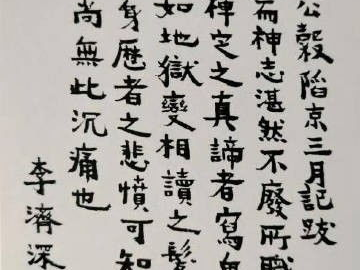 公穀陷京三月記跋
而神志湛然不廢所職
禪定之真諦者寫
如地獄變相讀之髮
身歷者之悲憤可知
尚無此沉痛也
李濟深